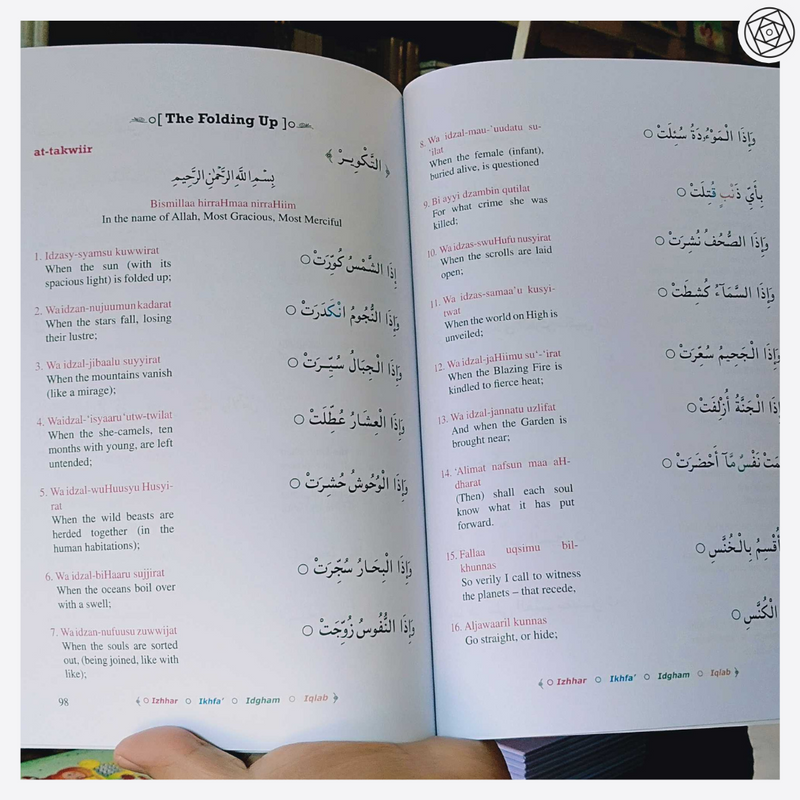 The Folding Up
at-takwiir
التَّكْوِيرْ
بِسْمِ اللَّهِ الرَّحْمَٰنِ الرَّحِيمِ
Bismillaa hirraHmaa nirraHiim
In the name of Allah, Most Gracious, Most Merciful
1. Idzasy-syamsu kuwwirat
When the sun (with its
spacious light) is folded up;
إِذَا الشَّمْسُ كُوِّرَتْ
2. Wa idzan-nujuumun kadarat
When the stars fall, losing
their lustre;
وَإِذَا النُّجُومُ انْكَدَرَتْ
3. Wa idzal-jibaalu suyyirat
When the mountains vanish
(like a mirage);
وَإِذَا الْجِبَالُ سُيِّرَتْ
4. Waidzal-‘isyaaru ‘utw-twilat
When the she-camels, ten
months with young, are left
untended;
وَإِذَا الْعِشَارُ عُطِّلَتْ
5. Wa idzal-wuHuusyu Husyi-
rat
When the wild beasts are
herded together (in the
human habitations);
وَإِذَا الْوُحُوشُ حُشِرَتْ
6. Wa idzal-biHaaru sujjirat
When the oceans boil over
with a swell;
وَإِذَا الْبِحَارُ سُجِّرَتْ
7. Wa idzan-nufuusu zuwwijat
When the souls are sorted
out, (being joined, like with
like);
وَإِذَا النُّفُوسُ زُوِّجَتْ
98
Izhhar Ikhfa’ Idgham Iqlab
8. Wa idzal-mau-`uudatu su-
‘ilat
When the female (infant),
buried alive, is questioned
وَإِذَا الْمَوْءُدَةُ سُئِلَتْ
9. Bi ayyi dzambin qutilat
For what crime she was
killed;
بِأَيِّ ذَنْبٍ قُتِلَتْ
10. Wa idzas-swuHufu nusyirat
When the scrolls are laid
open;
وَإِذَا الصُّحُفُ نُشِرَتْ
11. Wa idzas-samaa’u kusyi-
twat
When the world on High is
unveiled;
وَإِذَا السَّمَآءُ كُشِطَتْ
12. Wa idzal-jaHiimu su‘-‘irat
When the Blazing Fire is
kindled to fierce heat;
وَإِذَا الْجَحِيمُ سُعِّرَتْ
13. Wa idzal-jannatu uzlifat
And when the Garden is
brought near;
وَإِذَا الْجَنَّةُ أُزْلِفَتْ
14. ‘Alimat nafsun maa aH-
dharat
(Then) shall each soul
know what it has put
forward.
نَفْسٌ مَّآ أَحْضَرَتْ
15. Fallaa uqsimu bil-
khunnas
So verily I call to witness
the planets – that recede,
أُقْسِمُ بِالْخُنَّسِ
16. Aljawaaril kunnas
Go straight, or hide;
الْكُنَّسِ
Izhhar Ikhfa’ Idgham Iqlab